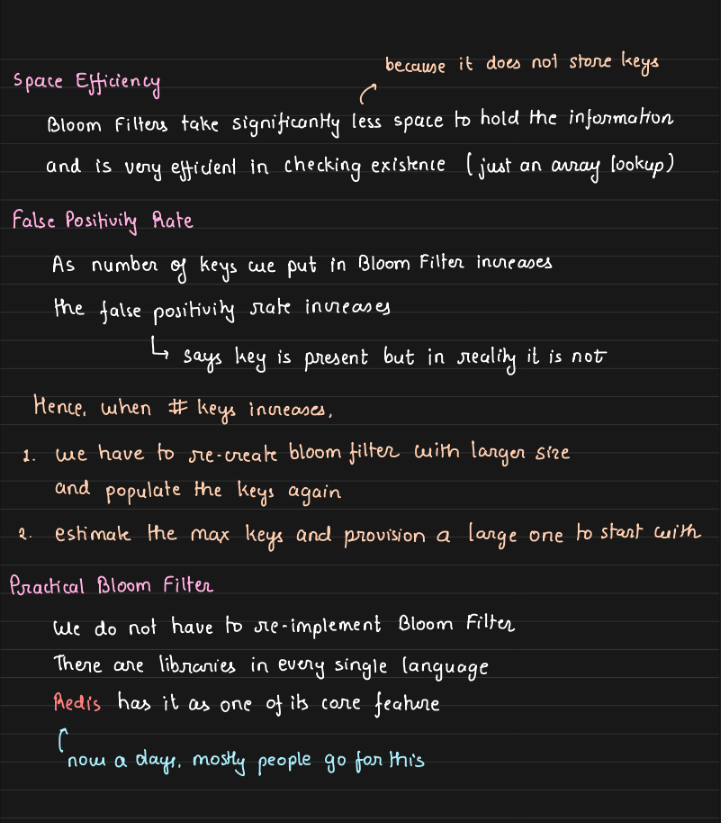 because it does not store keys
Space Efficiency
Bloom Filters take significantly less space to hold the information
and is very efficient in checking existence (just an array lookup)
False Positivity Rate
As number of keys we put in Bloom Filter increases
the false positivity rate increases
↳ says key is present but in reality it is not
Hence, when # keys increases,
1. we have to re-create bloom filter with larger size
and populate the keys again
2. estimate the max keys and provision a large one to start with
Practical Bloom Filter
We do not have to re-implement Bloom Filter
There are libraries in every single language
Redis has it as one of its core feature
now a days, mostly people go for this